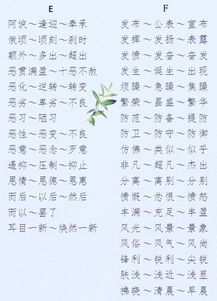 E
阿谀～逢迎～奉承
俄顷～顷刻～刹时
额外～多出～超出
恶贯满盈～十恶不赦
恶化～逆转～转变
恶劣～卑劣～不良
恶习～陋习
恶性～恶变～不良
恶意～恶念～歹意
遏抑～压制～抑止
恩情～恩德～恩惠
而后～以后～然后
而以～罢了
耳目一新～焕然一新
F
发布～公表～宣布
发挥～发扬～表露
发愤～发奋～奋发
发生～诞生～出现
烦躁～急躁～焦躁
繁荣～昌盛～繁华
防范～防备～提防
防卫～防守～防御
仿佛～类似～似乎
非凡～超凡～杰出
分离～离别～分别
愤慨～忿恨～愤怒
丰满～充足～丰盈
风光～风景～景象
风俗～风气～风尚
锋利～锐利～尖锐
肤浅～浅近～浅显
拂晓～清晨～早晨